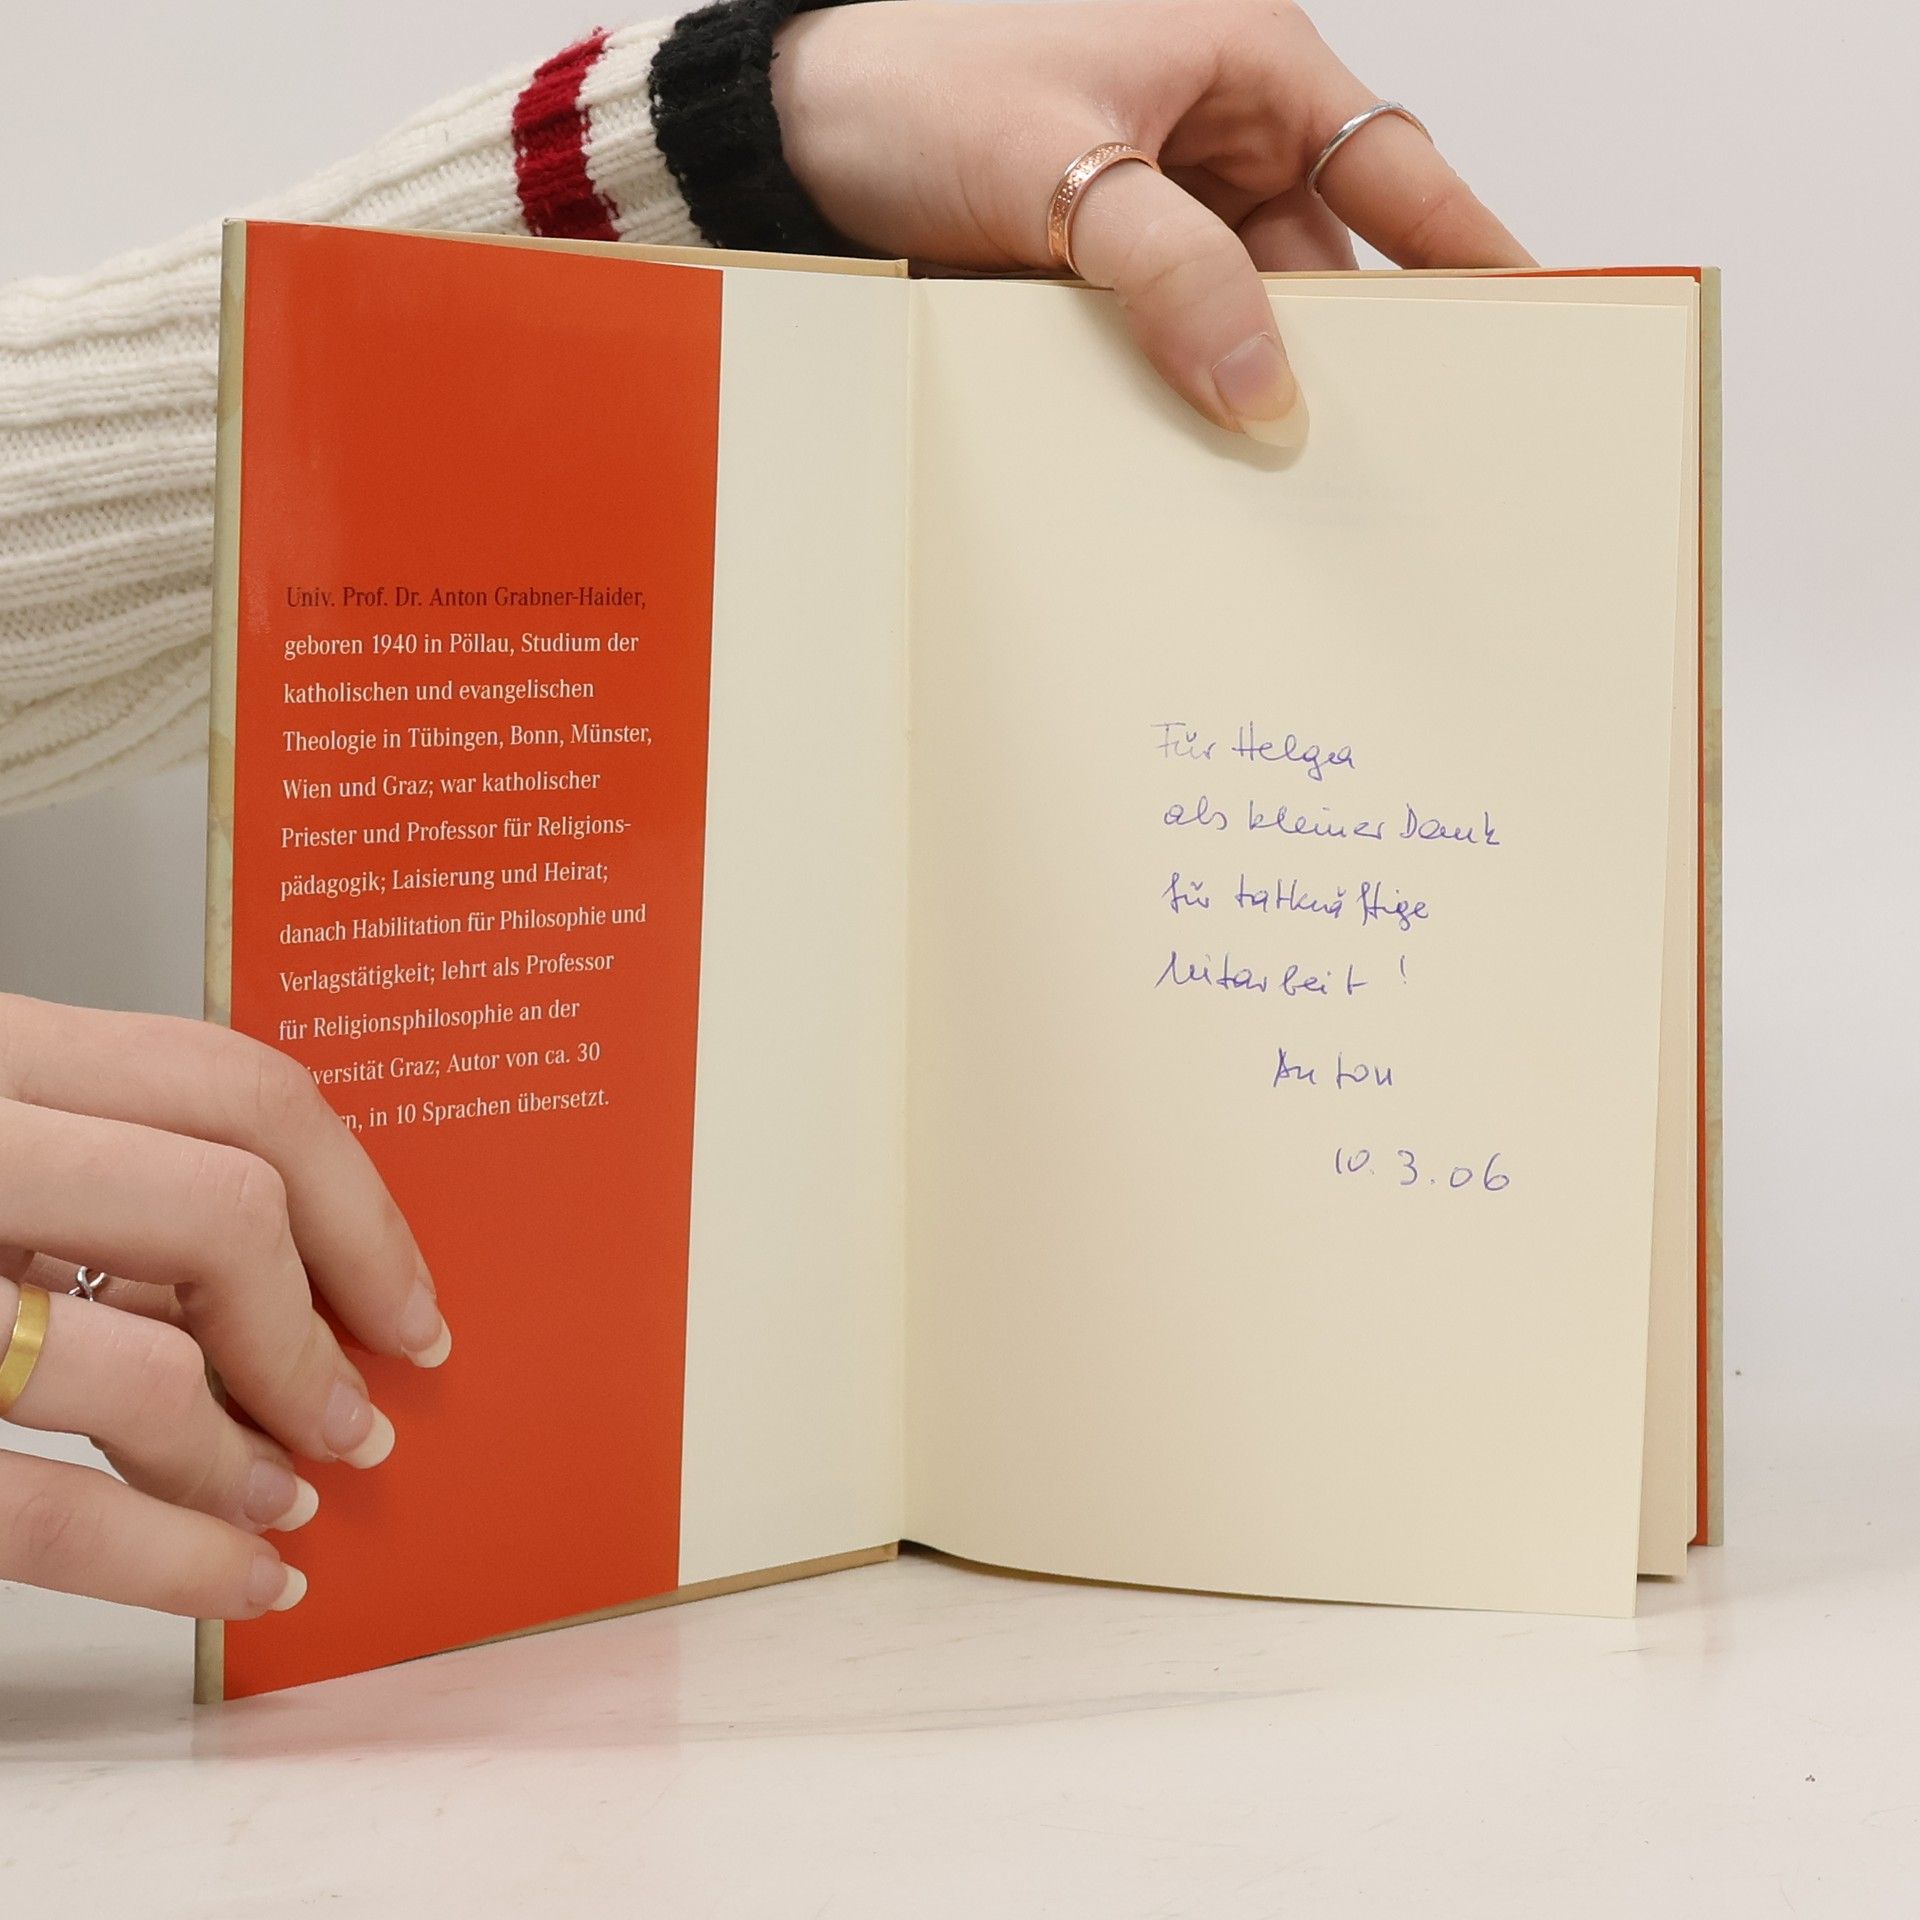 Univ. Prof. Dr. Anton Grabner-Haider,
geboren 1940 in Pöllau, Studium der
katholischen und evangelischen
Theologie in Tübingen, Bonn, Münster,
Wien und Graz; war katholischer
Priester und Professor für Religions-
pädagogik; Laisierung und Heirat;
danach Habilitation für Philosophie und
Verlagstätigkeit; lehrt als Professor
für Religionsphilosophie an der
Graz; Autor von ca. 30
in 10 Sprachen übersetzt.
Für Helga
als kleiner Dank
für tatkräftige
Mitarbeit !
Anton
10.3.06